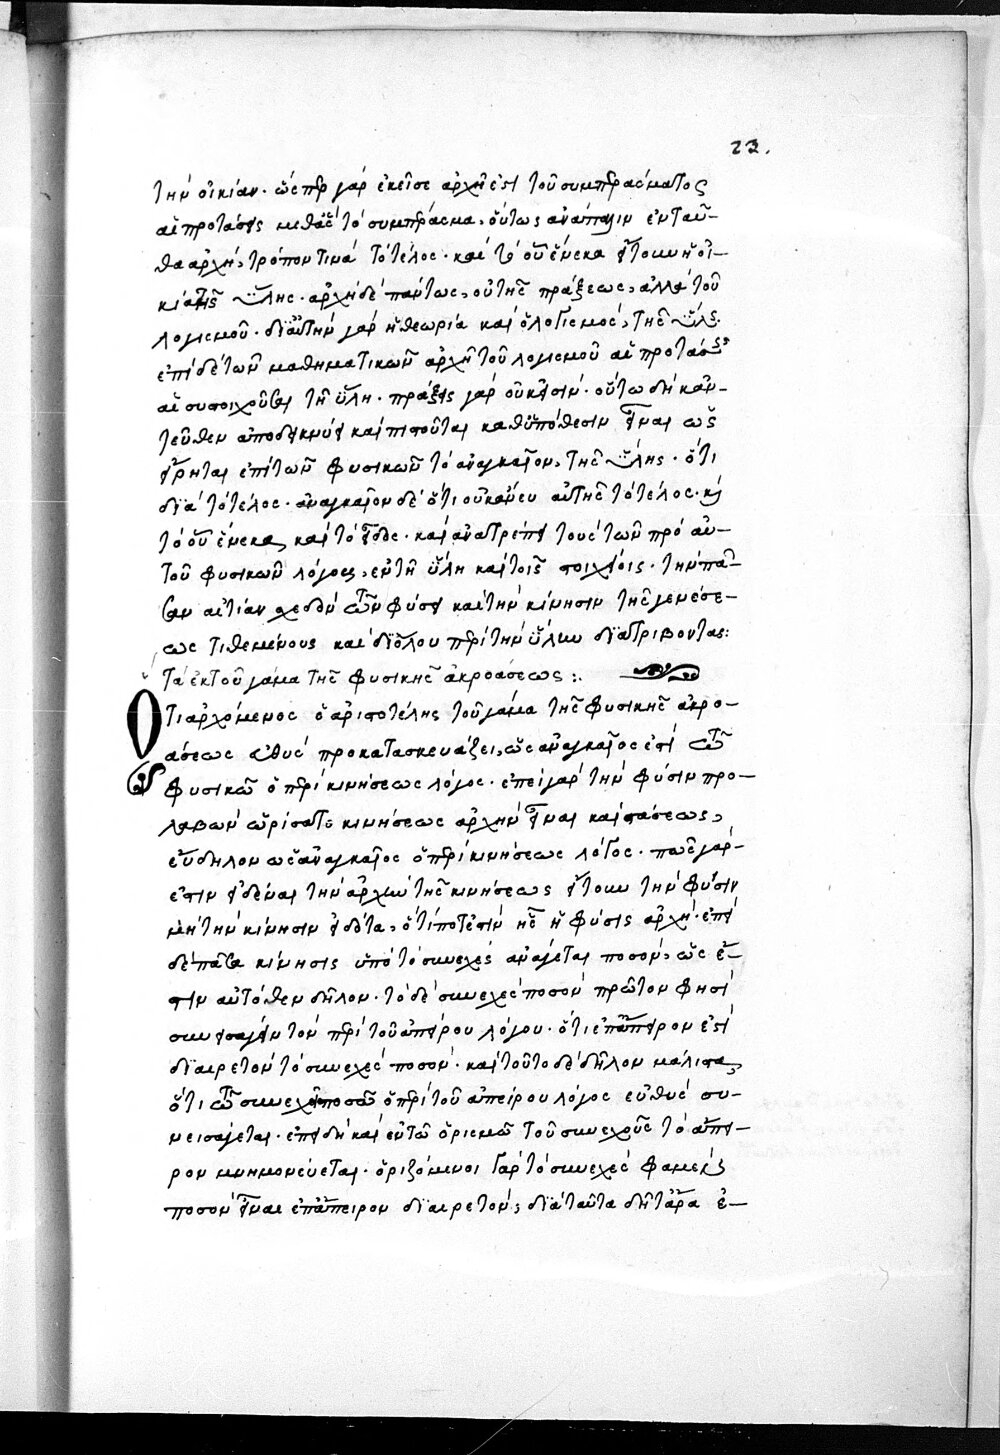 23.
τὴν οἰκίαν· ὥσπερ γὰρ ἐκεῖσε ἀρχή ἐστι τοῦ συμπεράσματος
αἱ προτάσεις μεθ' ἃς τὸ συμπέρασμα, οὕτως ἀνάπαλιν ἐνταῦ-
θα ἀρχὴ, τρόπον τινὰ τὸ τέλος· καὶ τὸ οὗ ἕνεκα ἤτοι ἡ οἰ-
κία τῆς ὕλης· ἀρχὴ δὲ πάντως, οὐ τῆς πράξεως, ἀλλὰ τοῦ
λογισμοῦ· δι' αὐτὴν γὰρ ἡ θεωρία καὶ ὁ λογισμὸς, τῆς ὕλης·
ἐπὶ δὲ τῶν μαθηματικῶν ἀρχὴ τοῦ λογισμοῦ αἱ προτάσεις
αἳ συστοιχοῦσι τῇ ὕλῃ· πράξις γὰρ οὐκ ἔστιν· οὕτω δὴ κἀν-
τεῦθεν ἀποδείκνυσι καὶ πιστοῦται καθ' ὑπόθεσιν εἶναι ὡς
εἴρηται ἐπὶ τῶν φυσικῶν τὸ ἀναγκαῖον, τῆς ὕλης· ὅτι
διὰ τὸ τέλος· ἀναγκαῖον δὲ ὅτι οὐκ ἄνευ αὐτῆς τὸ τέλος· καὶ
τὸ οὗ ἕνεκα, καὶ τὸ εἶδος· καὶ ἀνατρέπει τοὺς τῶν πρὸ αὐ-
τοῦ φυσικῶν λόγους, ἐν τῇ ὕλῃ καὶ τοῖς στοιχείοις· τὴν πᾶ-
σαν αἰτίαν σχεδὸν τῶν φύσει καὶ τὴν κίνησιν τῆς γενέσε-
ως τιθεμένους καὶ διόλου περὶ τὴν ὕλην διατρίβοντας:
Τὰ ἐκ τοῦ γάμα τῆς φυσικῆς ἀκροάσεως :.
Ὅτι ἀρχόμενος ὁ ἀριστοτέλης τοῦ γάμα τῆς φυσικῆς ἀκρο-
άσεως εὐθὺς προκατασκευάζει, ὡς ἀναγκαῖός ἐστι τῶν
φυσικῶ ὁ περὶ κινήσεως λόγος· ἐπεὶ γὰρ τὴν φύσιν προ-
λαβὼν ὡρίσατο κινήσεως ἀρχὴν εἶναι καὶ στάσεως,
εὔδηλον ὡς ἀναγκαῖος ὁ περὶ κινήσεως λόγος· πῶς γάρ
ἐστιν εἰδέναι τὴν ἀρχὴν τῆς κινήσεως ἤτοι τὴν φύσιν
μὴ τὴν κίνησιν εἰδότα, ὅτί ποτέ ἐστιν ἧς ἡ φύσις ἀρχή· ἐπεὶ
δὲ πᾶσα κίνησις ὑπὸ τὸ συνεχὲς ἀνάγεται ποσόν, ὡς ἔ-
στιν αὐτόθεν δῆλον· τὸ δὲ συνεχὲς ποσὸν πρῶτον φησὶ
συνεισάγειν τὸν περὶ τοῦ ἀπείρου λόγον· ὅτι ἐπ' ἄπειρον ἐστὶ
διαιρετὸν τὸ συνεχὲς ποσόν· καὶ τοῦτο δὲ δῆλον μάλιστα,
ὅτι τῶ συνεχεῖ ποσῶ ὁ περὶ τοῦ ἀπείρου λόγος εὐθὺς συ-
νεισάγεται· ἐπειδὴ καὶ ἐν τῶ ὁρισμῶ τοῦ συνεχοῦς τὸ ἄπει-
ρον μνημονεύεται· ὁριζόμενοι γὰρ τὸ συνεχὲς φαμὲν
ποσὸν εἶναι ἐπ' ἄπειρον διαιρετόν; διὰ ταῦτα δῆτ' ἄρα ἐ-